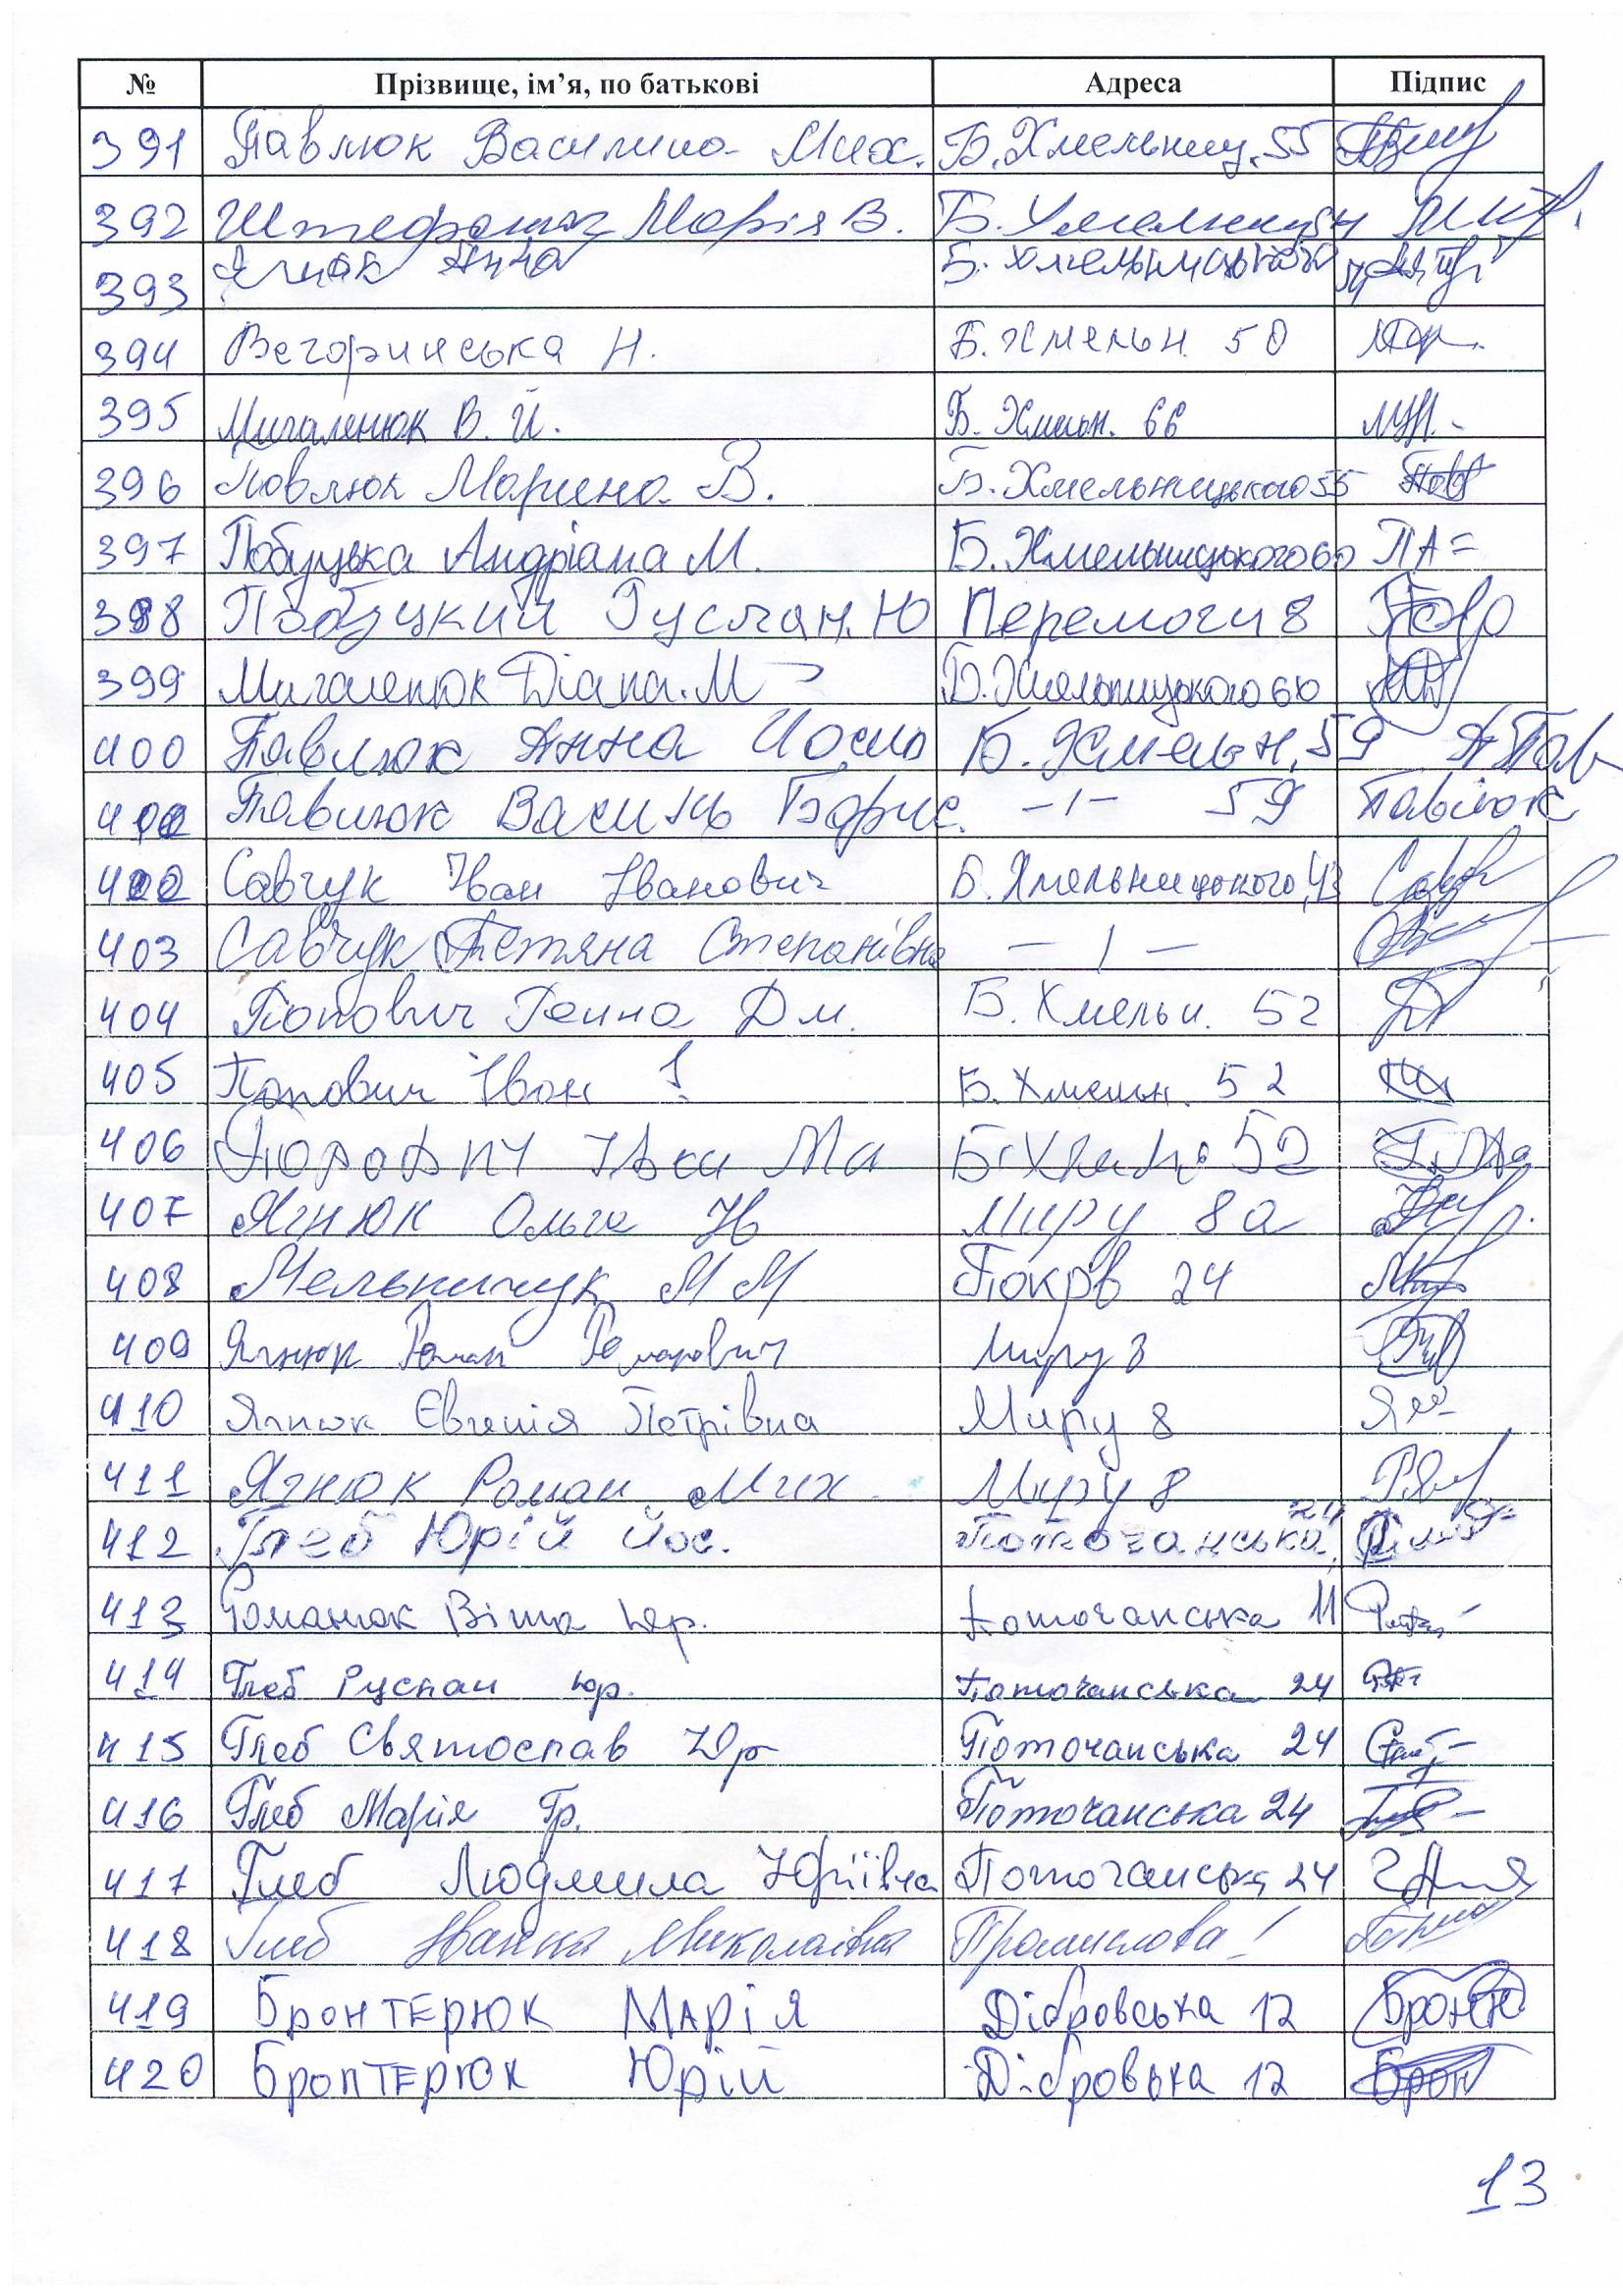 № Прізвище, ім’я, по батькові Адреса Підпис
391 Павлюк Василина Мих. Б. Хмельниц. 55
392 Штефанюк Марія В. Б. Хмельниц
393 Анна Б. Хмельницького
394 Вегоринська Н. Б. Хмельн. 50
395 Мигаленюк В. Й. Б. Хмельн. 66
396 Павлюк Марина В. Б. Хмельницького 55
397 Побуцька Андріана М. Б. Хмельницького 60 ПА=
398 Побуцкий Руслан. Ю Перемоги 8
399 Мигаленюк Діана. М Б. Хмельницького 60
400 Павлюк Анна Йосип Б. Хмельн. 59 А Пав
Павлюк Василь Борис. –ı– 59 Павлюк
402 Савчук Іван Іванович Б. Хмельницького, 43
403 Савчук Тетяна Степанівна – ı –
404 Попович Ганна Дм. Б. Хмельн. 52
405 Попович Іван І Б. Хмельн. 52
406 Іван Ма 52
407 Ягнюк Ольга Миру 8а
408 Мельничук М М Покрв 24
409 Ягнюк Роман Романович Миру 8
410 Ягнюк Євгенія Петрівна Миру 8
411 Ягнюк Роман Мих. Миру 8
412 Глеб Юрій Йос. Поточанська, 24
413 Романюк Віта Юр. Поточанська 11
414 Глеб Руслан Юр. Поточанська 24
415 Глеб Святослав Юр Поточанська 24
416 Глеб Марія Гр. Поточанська 24
417 Глеб Людмила Юріївна Поточанська 24
418 Глеб Іванна Миколаївна Промислова 1
419 Бронтерюк Марія Дібровська 12
420 Бронтерюк Юрій Дібровька 12 Брон
13